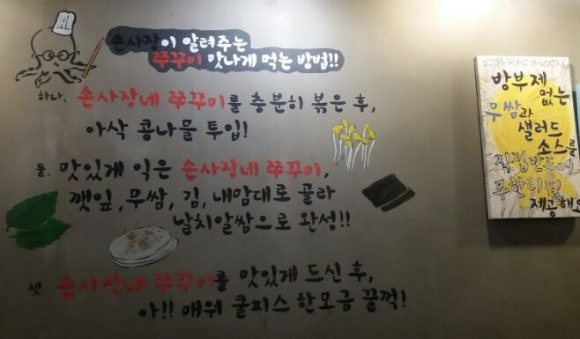 손사장이 알려주는
쭈꾸미 맛나게 먹는 방법!!
하나. 손사장네 쭈꾸미를 충분히 볶은 후,
아삭 콩나물 투입!
둘. 맛있게 익은 손사장네 쭈꾸미,
깻잎, 무쌈, 김, 내맘대로 골라
날치알쌈으로 완성!!
셋. 손사장네 쭈꾸미를 맛있게 드신 후,
아!! 매워 쿨피스 한모금 꿀꺽!
방부제
없는
무쌈과
샐러드
소스를
직접만들어
무한리필
제공해요